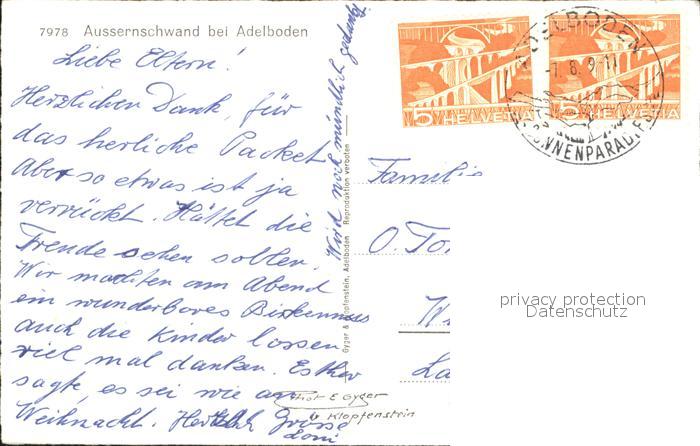 7978 Aussernschwand bei Adelboden
Liebe Eltern!
Herzlichen Dank, für
das herliche Packet
Aber so etwas ist ja
verrückt. Hättet die
Freude sehen sollen.
Wir machten am Abend
ein wunderbares
auch die Kinder lassen
viel mal danken. Esther
sagte, es sei wie an
Weihnacht. Herzlich Grüsse
Wird noch mündlich gedankt
Gyger & Klopfenstein, Adelboden Reproduktion verboten
Phot E Gyger
& Klopfenstein
5 HELVETIA
5 HELVETIA
ADELBODEN
SONNENPARADIES
Familie
O. Tor
W
La
privacy protection
Datenschutz